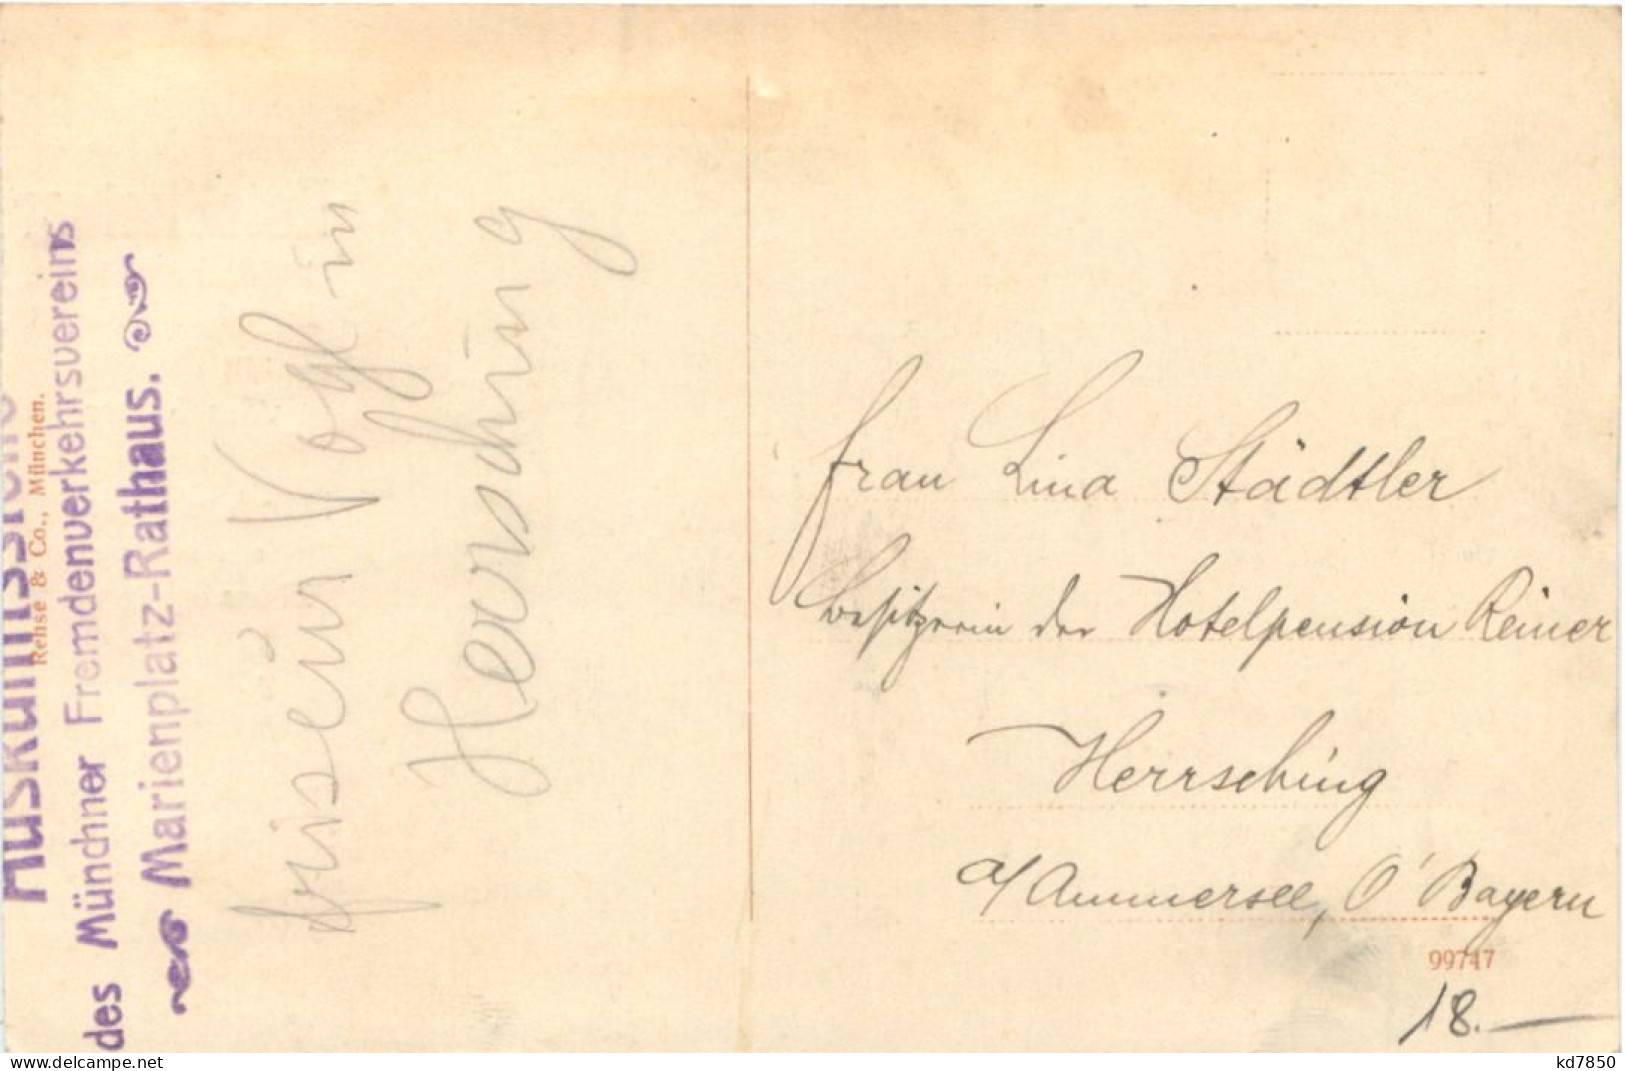 Auskunftsstelle
Rehse & Co., München.
des Münchner Fremdenverkehrsvereins
Marienplatz-Rathaus.
friseur Vogl in
Herrsching
Frau Lina Städtler
Besitzerin der Hotelpension Reiner
Herrsching
a/Ammersee, O'Bayern
99747
18.—
www.delcampe.net
kd7850